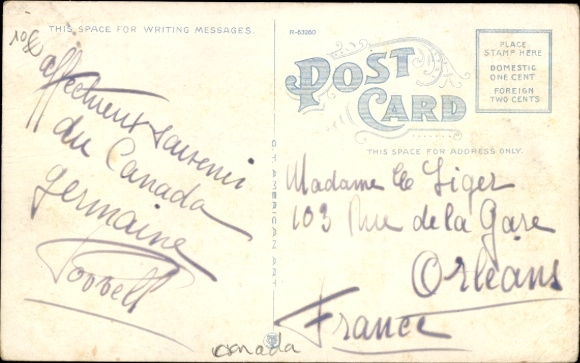 THIS SPACE FOR WRITING MESSAGES.
R-63980
affectueux souvenir
du Canada
germaine
POST
CARD
PLACE
STAMP HERE
DOMESTIC
ONE CENT
FOREIGN
TWO CENTS
THIS SPACE FOR ADDRESS ONLY.
Madame
103 Rue de la Gare
Orléans
France
Canada